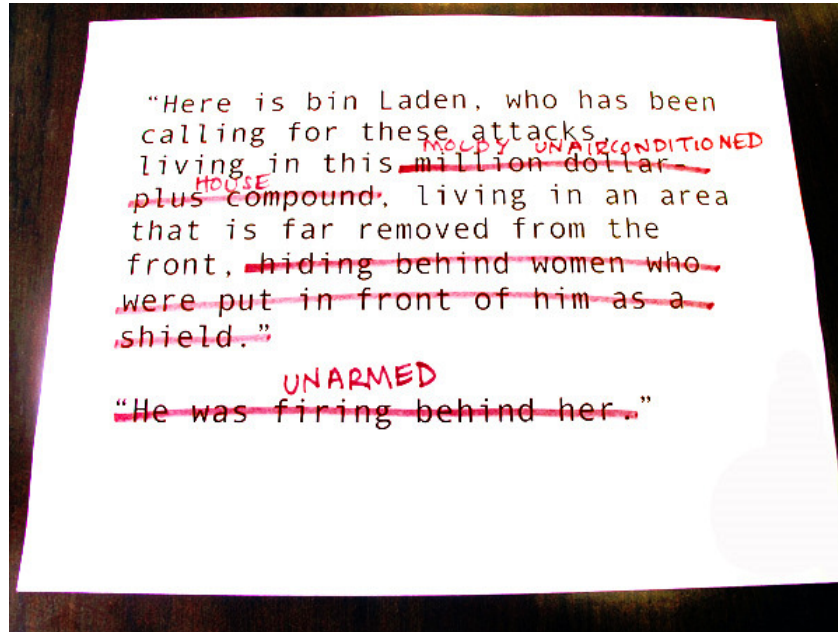 “Here is bin Laden, who has been
calling for these attacks,
MOLDY UNAIRCONDITIONED
living in this million dollar-
HOUSE
plus compound, living in an area
that is far removed from the
front, hiding behind women who
were put in front of him as a
shield.”
UNARMED
“He was firing behind her.”